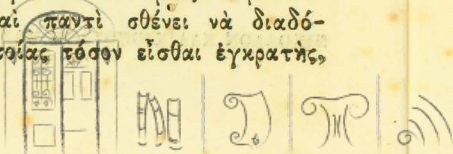 αὶ παντὶ σθένει νὰ διαδό-
ποίας τόσον εἶσθαι ἐγκρατὴς,